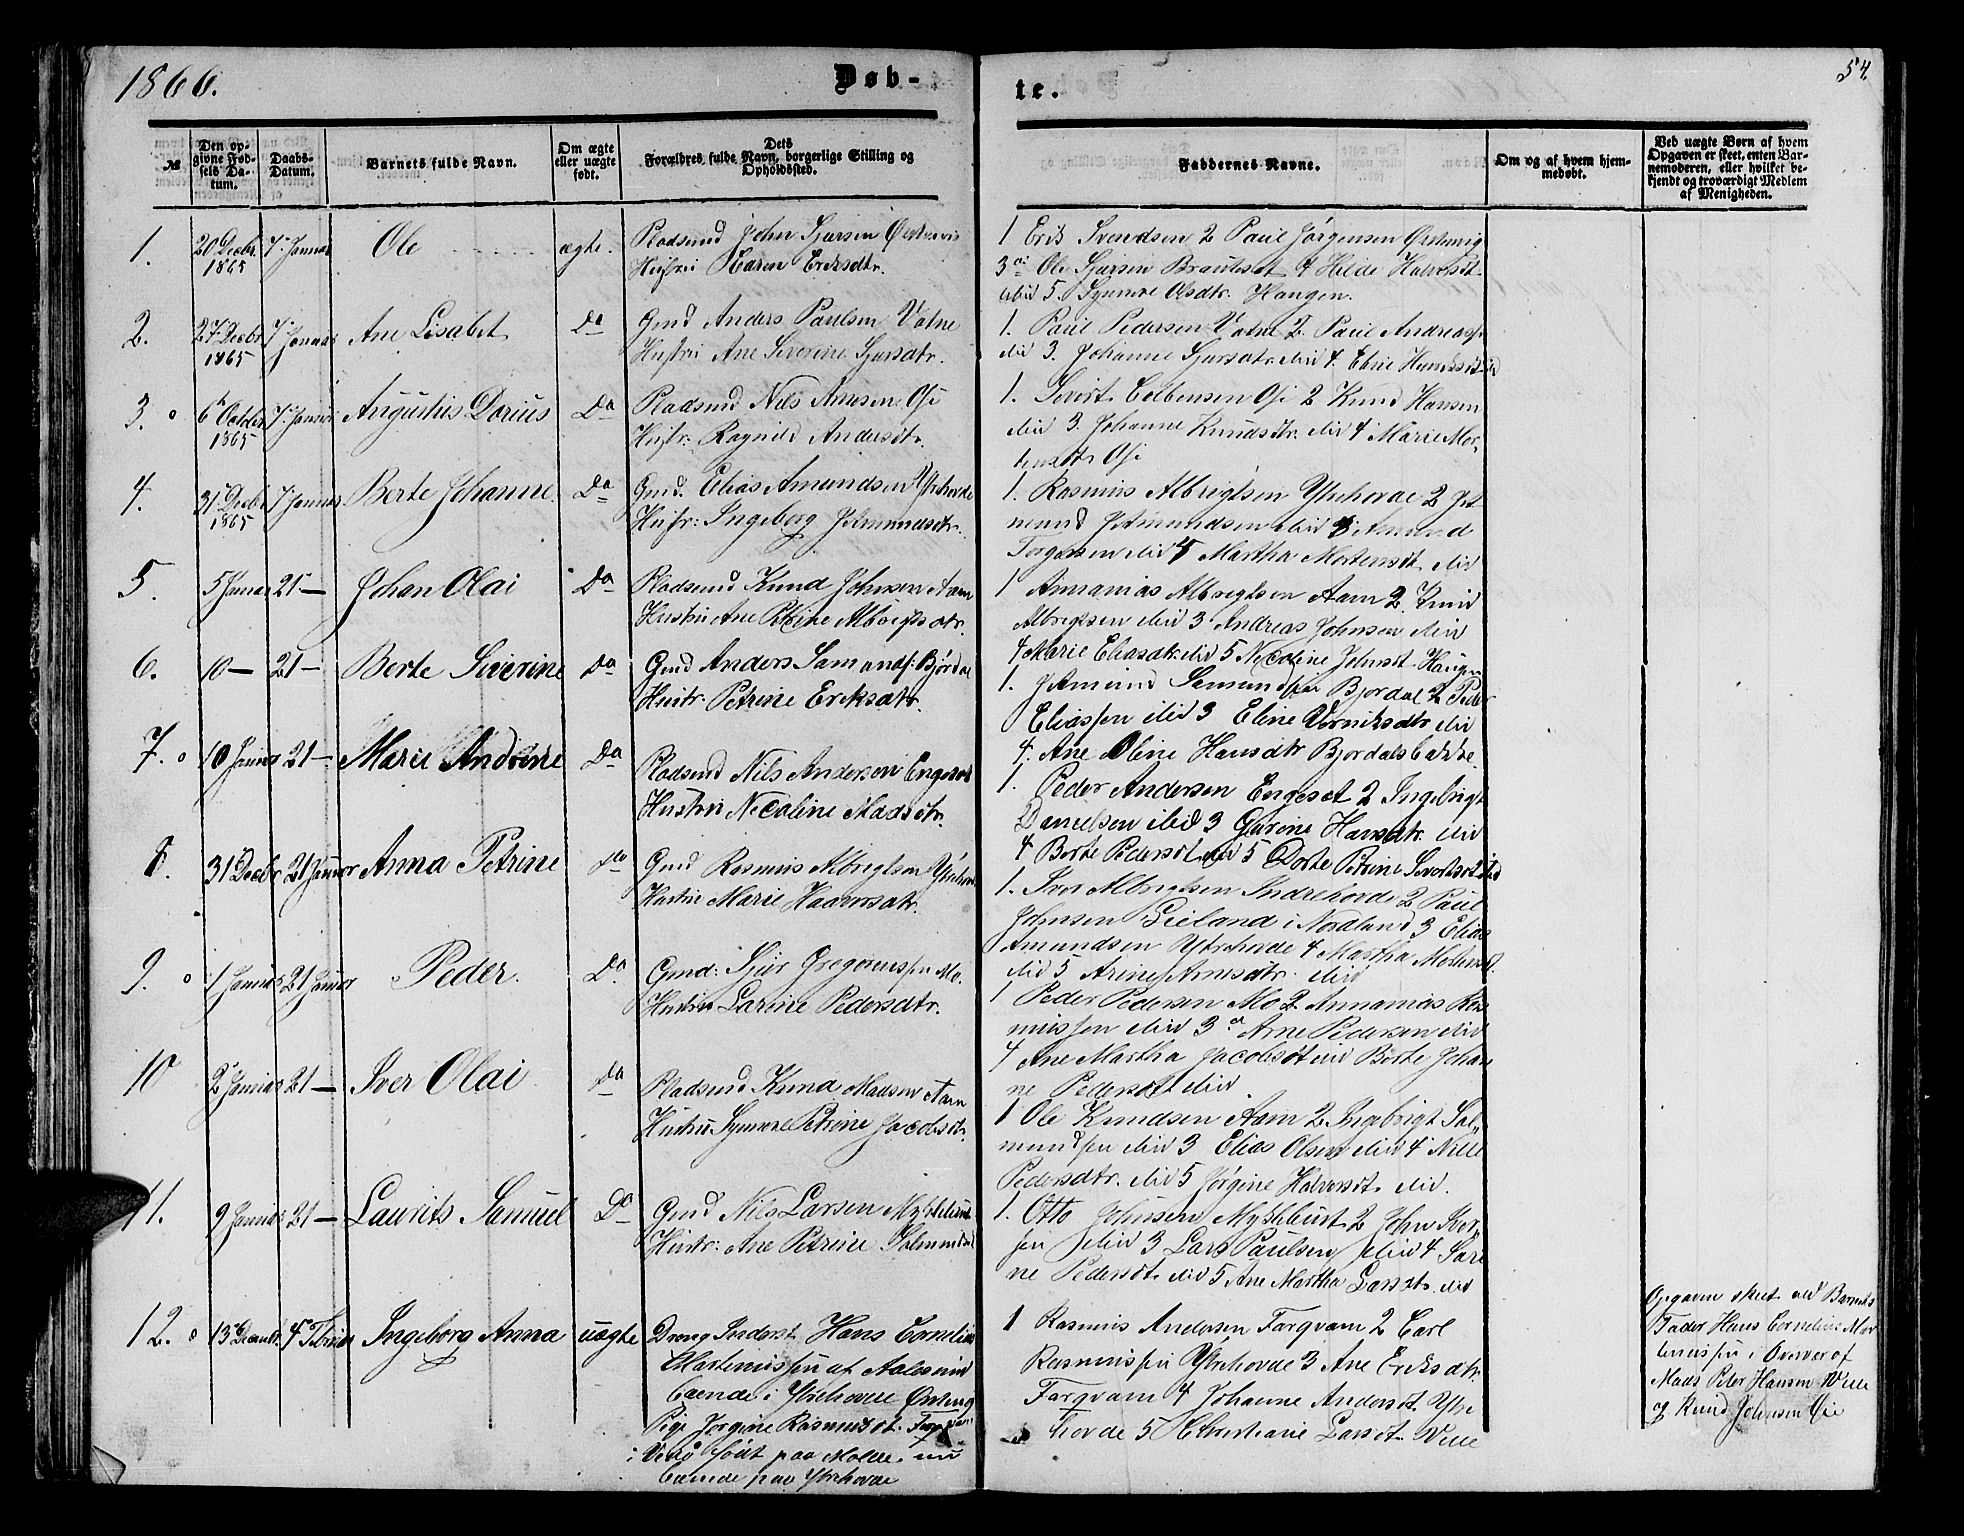 1866.
Døb-
te.
54.
№
Den op-
givne Fød-
sels Da-
tum.
Daabs-
Datum.
Barnets fulde Navn.
Om ægte
eller uægte
født.
Dets
Forældres fulde Navn, borgerlige Stilling og
Opholdssted.
Faddernes Navne.
Om og af hvem hjem-
medøbt.
Ved uægte Børn af hvem
Opgaven er skeet, enten Bar-
nemoderen, eller hvilket be-
kjendt og troværdigt Medlem
af Menigheden.
1.
20 Decbr
1865
7 Januar
Ole
ægte.
Pladsmd John Sjursen
Hustru Karen Eriksdtr.
1 Erik Svendsen 2 Paul Jørgensen
3 Ole Sjursen 4 Hilde
ibid 5. Synnøve Olsdtr. Haugen.
2.
27 Decbr
1865
7 Januar
Ane Lisabet
Do
Gmd Anders Paulsen Vatne
Hustru Ane Severine Sjursdtr.
1. Paul Pedersen Vatne 2. Paul Andreass
ibid 3. Johanne Sjursdtr. ibid 4.
3.
6 October
1865
7 Januar
Augustius Dorius
Do
Pladsmd Nils Arnesen Osi
Hustr. Ragnild Andersdtr.
1. Sivert Colbensen Osi 2 Knud Hansen
ibid 3. Johanne Knudsdtr. ibid 4 Marie Mor-
tensdtr Osi
4.
31 Decbr
1865
7 Januar
Berte Johanne
Do
Gmd. Elias Amundsen Ytrehovde
Hustr: Ingeborg
1. Rasmus Albrigtsen Ytrehovde 2
ibid
ibid 4 Martha Mortensdt ibid
5.
5 Januar
21 —
Johan Olai
Do
Pladsmd Knud Johnsen Aam
Hustru Ane Petrine Albrigtsdtr.
1 Annanias Albrigtsen Aam 2. Knud
Albrigtsen ibid 3 Andreas Johnsen ibid
4 Marie Eliasdtr. ibid 5 Nicoline Johnsdt. Haugen
6.
10 —
21 —
Berte Siverine
Do
Gmd Anders Bjørdal
Hustr. Petrine Eriksdtr.
1. Bjørdal 2 Peder
Eliassen ibid 3 Eline ibid
4. Ane Oline Hansdtr Bjørdalsbakke.
7.
10 Januar
21 —
Marie Andrine
Do
Pladsmd Nils Andersen Engeset
Hustru Nicoline Madsdtr.
1. Peder Andersen Engeset 2 Ingebrigt
Danielsen ibid 3 Gurine Hansdtr. ibid
4 Berte Pedersdt. ibid 5 Dorte Petrine Sivertsdt ibid
8.
31 Decbr
21 Januar
Anna Petrine
do
Gmd Rasmus Albrigtsen Ytrehovde
Hustru Marie
1. Iver Albrigtsen Indrehovde 2 Paul
Johnsen i Nordland 3 Elias
Amundsen Ytrehovde 4 Martha Mortensdt.
ibid 5 Arnesdtr. ibid
9.
1 Januar
21 Januar
Peder.
Do.
Gmd: Sjur Gregoriussen Mo.
Hustru Larine Pedersdtr.
1 Peder Pedersen Mo 2 Annanias Ras-
mussen ibid 3 Arne Pedersen ibid
4 Ane Martha Jacobsdt ibid Berte Johan
ne Pedersdt ibid
10
2 Januar
21 —
Iver Olai
do
Pladsmd Knud Madsen Aam
Hustru Synnøve Petrine Jacobsdt.
1 Ole Knudsen Aam 2. Ingebrigt Sal-
mundsen ibid 3 Elias Olsen ibid 4 Nille
Pedersdtr. ibid 5 Jørgine Halvorsdt. ibid.
11.
9 Januar
21 —
Laurits Samuel
Do
Gmd Nils Larsen Myklebust
Hustr: Ane Petrine
1. Otto Johnsen Myklebust 2 John
sen ibid 3 Lars Paulsen ibid 4
ne Pedersdt. ibid 5 Ane Martha Larsdt. ibid
12.
13 Decembr.
4 Februar
Ingeborg Anna
uægte
Dreng Hans Cornelius
Martinussen af Aalesund
boende i Ytrehovde Ørsteng
Pige Jørgine Rasmusdt.
i født paa Molde, nu
boende paa Ytrehovde
1 Rasmus Andersen Forqvam 2 Carl
Rasmussen Ytrehovde 3 Ane Eriksdtr.
Forqvam 4 Johanne Andersdt Ytre
hovde 5 Larsdt.
Opgaven skeet ved Barnets
Fader Hans Cornelius Mar
tinussen i Overvær af
Mads Peter Hansen
og Knud Johnsen